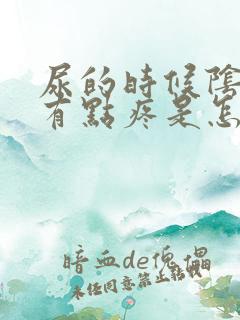 尿的時候陰
有點疼是怎
暗血de傀儡
未經同意禁止轉載